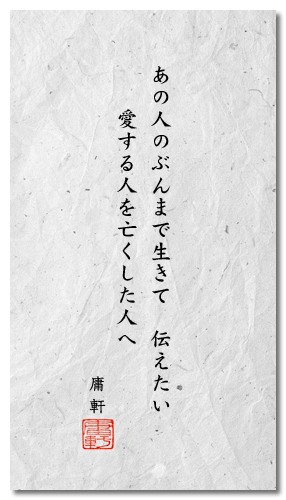 あの人のぶんまで生きて　伝えたい
愛する人を亡くした人へ
庸軒